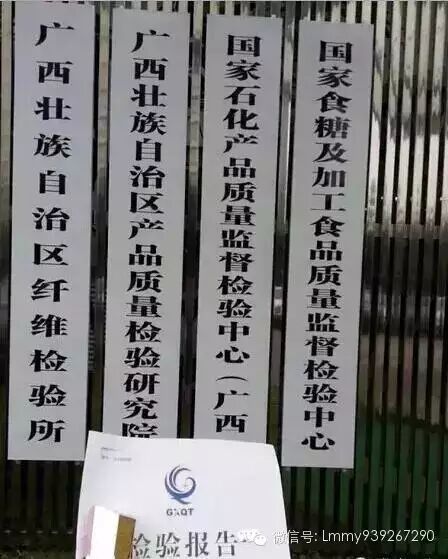 广西壮族自治区纤维检验所
广西壮族自治区产品质量检验研究院
国家石化产品质量监督检验中心(广西
国家食糖及加工食品质量监督检验中心
GXQT
检验报告
微信号: Lmmy939267290